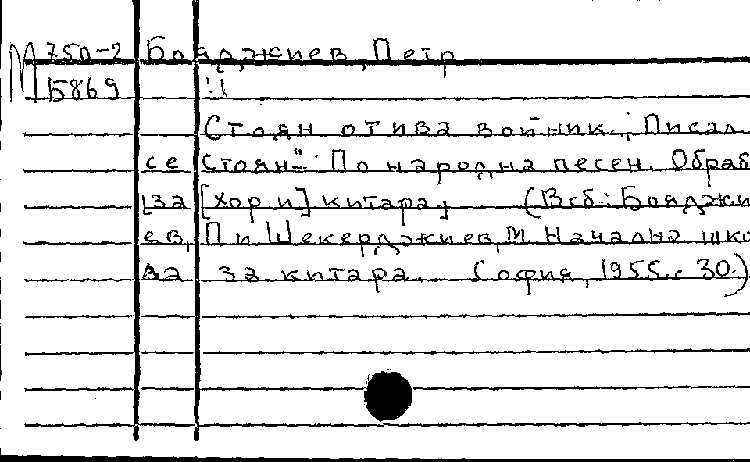 М 750-2 Бояджиев, Петр
15869
Стоян отива войник. „Писал
се Стоян“. По народна песен. Обраб
[за [хор и] китара]. (В сб: Бояджи
ев, П и Шекерджиев, М. Начална шко
ла за китара. София, 1955, с. 30.)